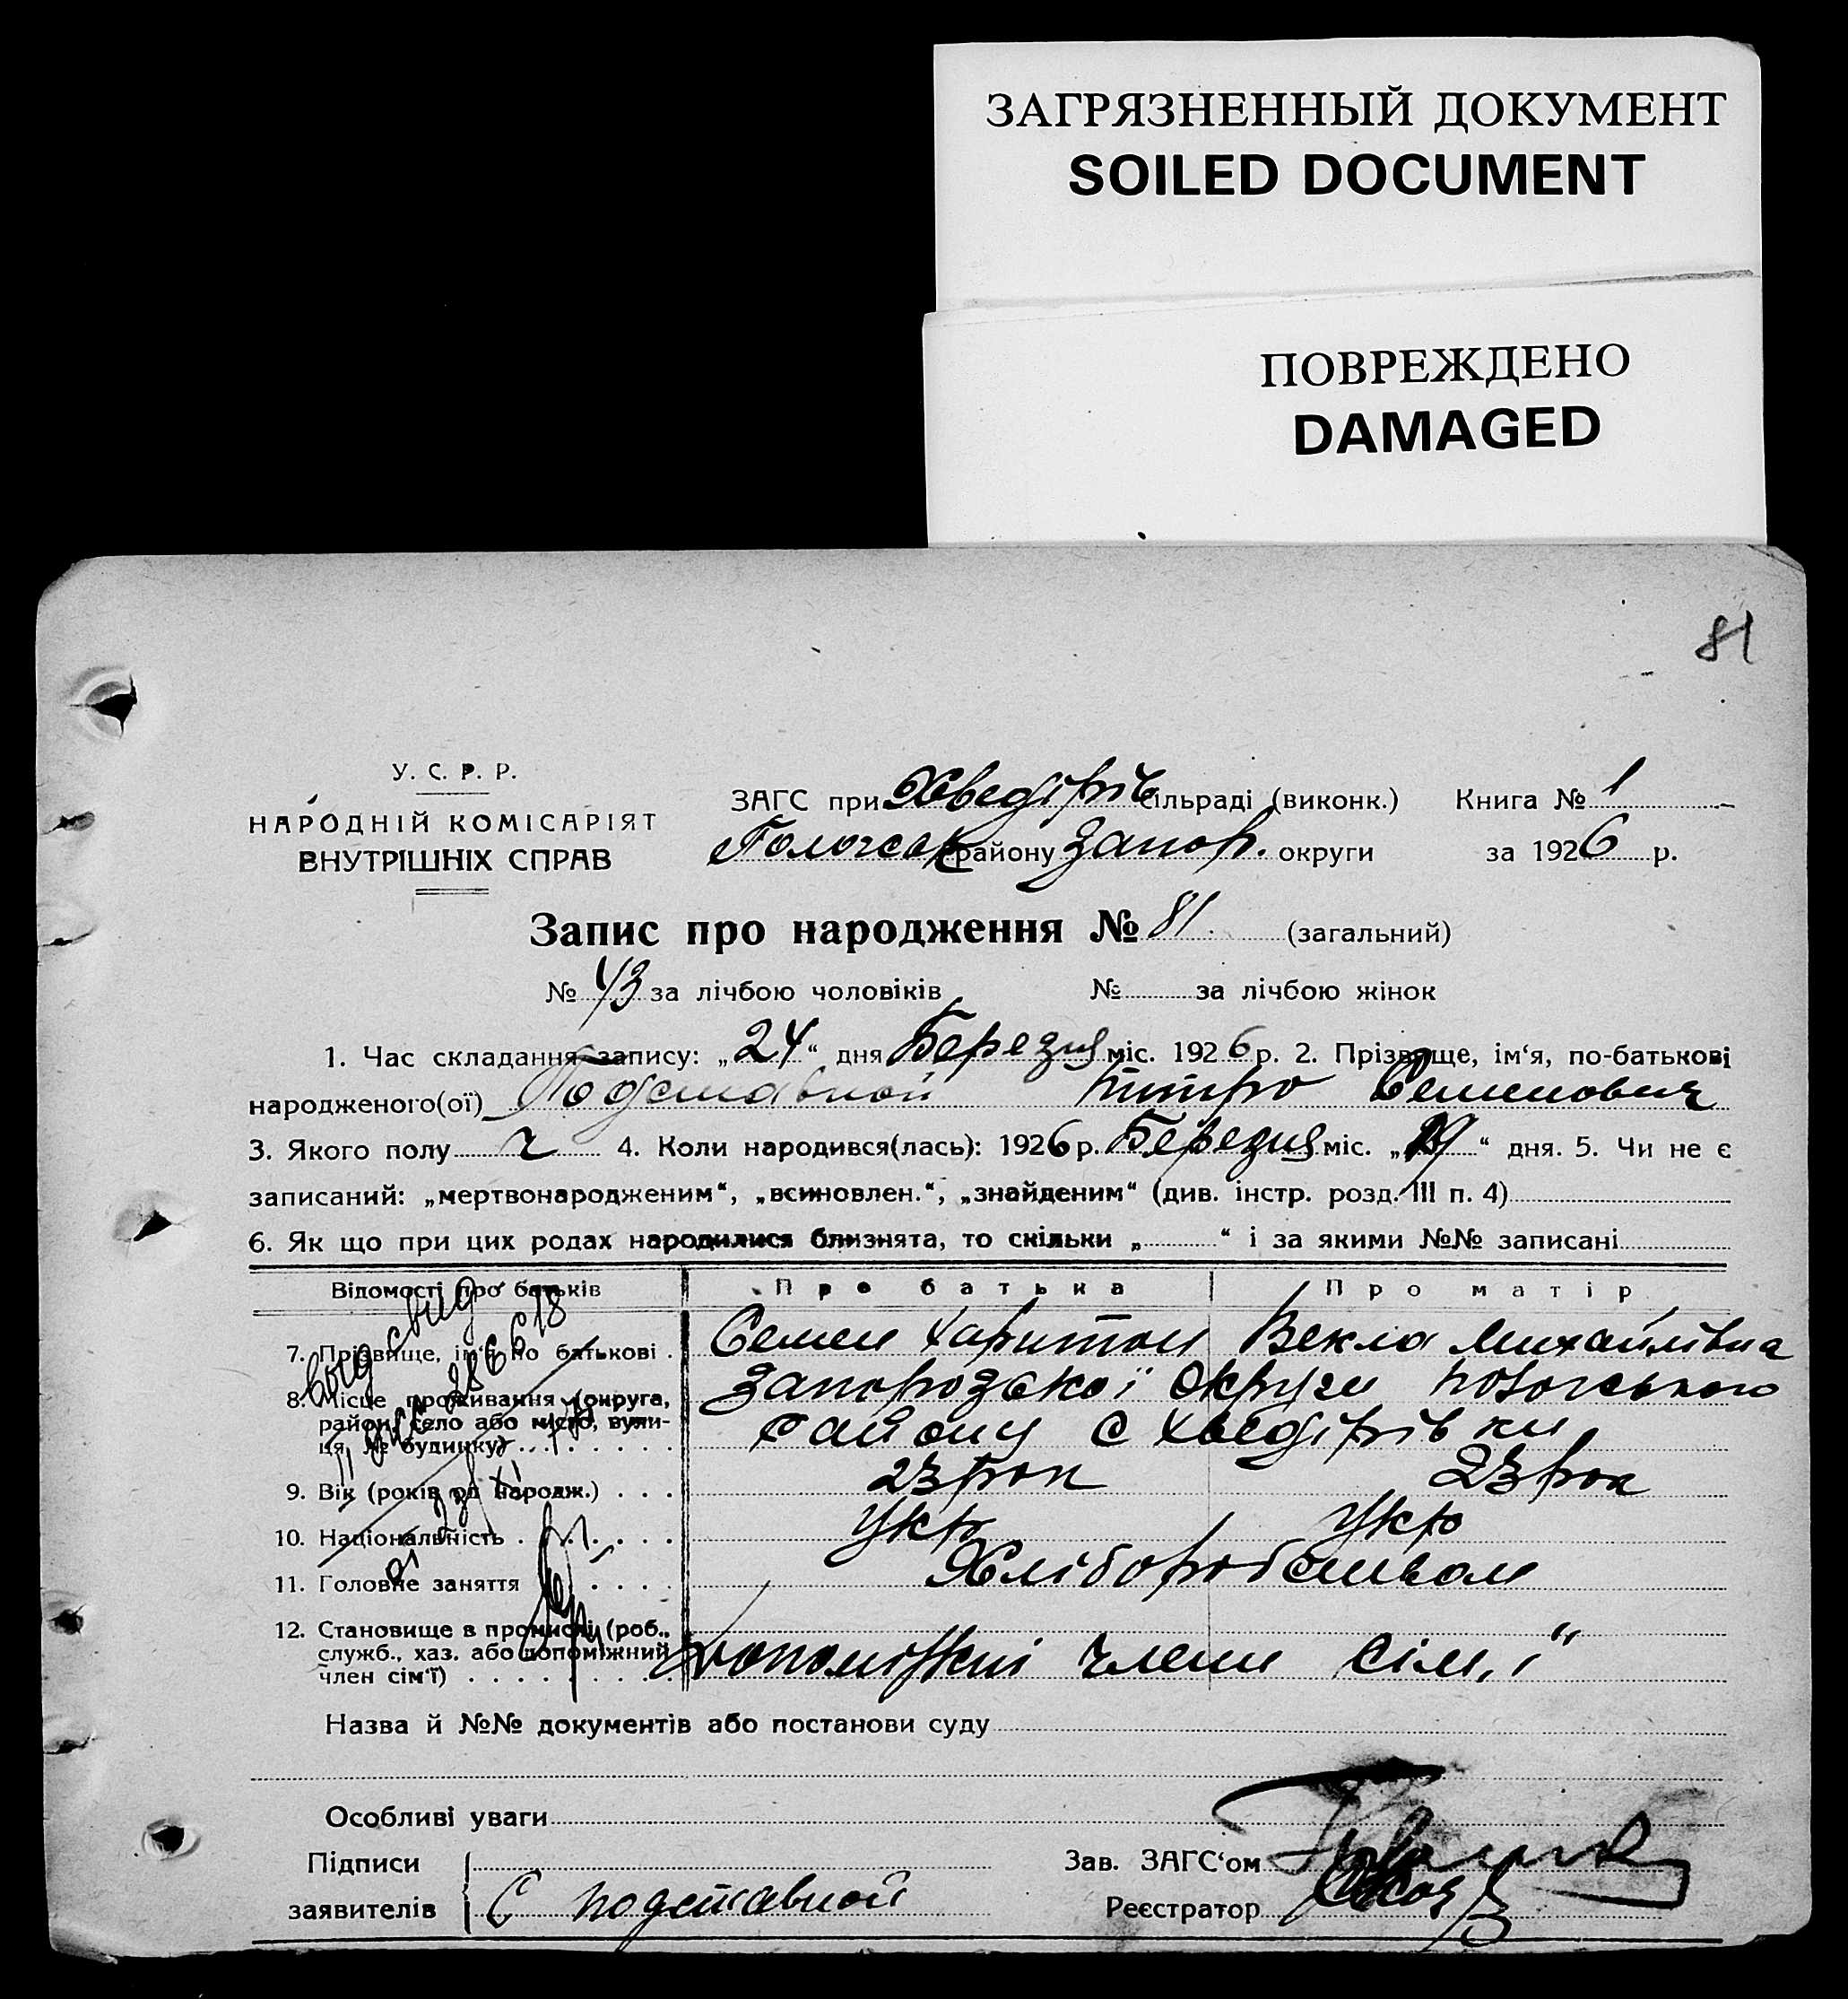 ЗАГРЯЗНЕННЫЙ ДОКУМЕНТ
SOILED DOCUMENT
ПОВРЕЖДЕНО
DAMAGED
81
У. С. Р. Р.
НАРОДНІЙ КОМІСАРІЯТ
ВНУТРІШНІХ СПРАВ
ЗАГС при Хведірів сільраді (виконк.) Книга № 1
району Запор. округи за 1926 р.
Запис про народження № 81. (загальний)
№ 43 за лічбою чоловіків № за лічбою жінок
1. Час складання запису: „24“ дня Березня міс. 1926 р. 2. Прізвище, ім‘я, по-батькові
народженого(ої) Подставной Питро Семенович
3. Якого полу ч 4. Коли народився(лась): 1926 р. Березня міс. „19“ дня. 5. Чи не є
записаний: „мертвонародженим“, „всиновлен.“, „знайденим“ (див. інстр. розд. III п. 4)
6. Як що при цих родах народилися близнята, то скільки „ “ і за якими №№ записані
Відомості про батьків Про батька Про матір
7. Прізвище, ім‘я, по батькові . Семен Харитон Векла Михайлівна
8. Місце проживання (округа, Запорозької Округи
район, село або місто, вули- району с Хведірівки
ця, № будинку) . . . . . . .
9. Вік (років од народж.) . . . 23 рок 23 рок
10. Національність . . . . . Укр Укр
11. Головне заняття . . . . Хліборобством
12. Становище в промислі (роб.,
служб., хаз. або допоміжний
член сім‘ї) . . . . . . . . . допоміжні члени сім,ї
Назва й №№ документів або постанови суду
Особливі уваги
Підписи
Зав. ЗАГС‘ом
заявителів С Подставной Реєстратор